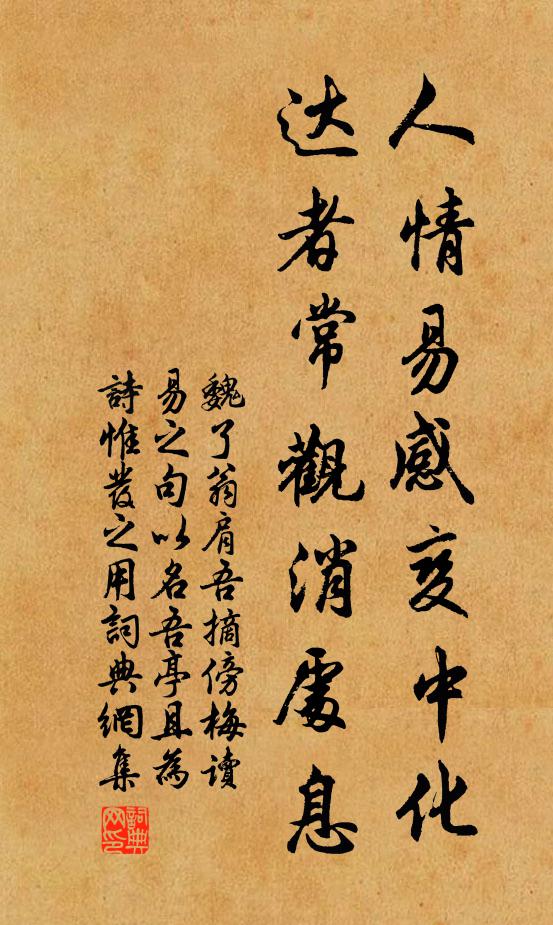 人情易感变中化
达者常觀消處息
魏了翁肩吾摘傍梅讀
易之句以名吾亭且為
詩惟發之用詞典網集
詞典网印